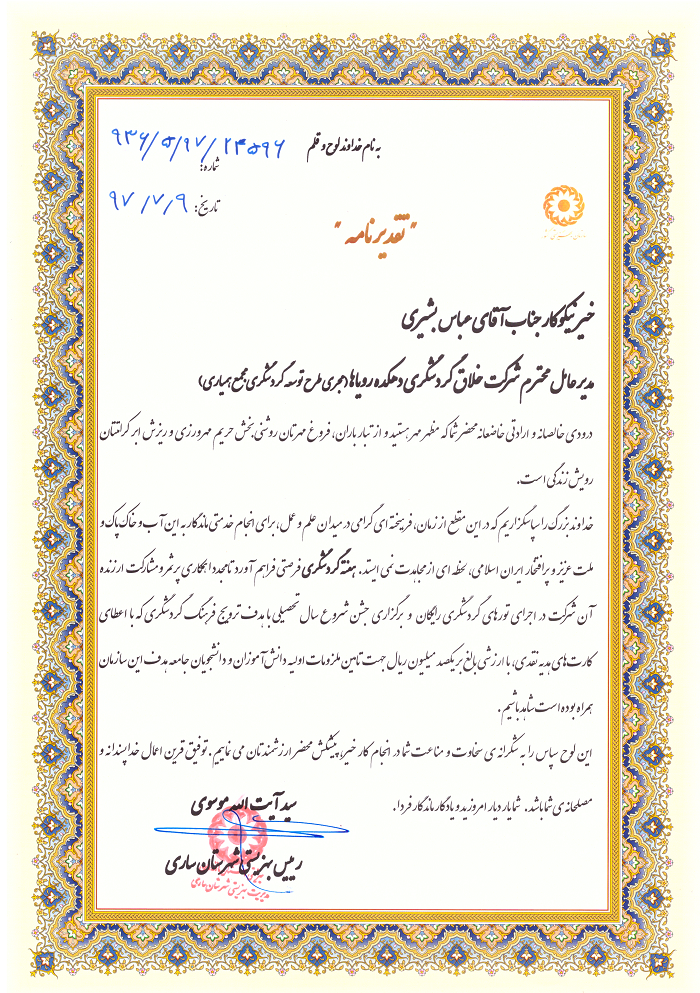 به نام خداوند لوح و قلم
۹۳۶/۵/۹۷/۲۴۵۹۶
شماره:
تاریخ: ۹۷/۷/۹
"تقدیرنامه"
خیر نیکوکار جناب آقای عباس بشیری
مدیر عامل محترم شرکت خلاق گردشگری دهکده رویاها (مجری طرح توسعه گردشگری مجمع همیاری)
درودی خالصانه و ارادتی خاضعانه محضر شما که مظهر مهر هستید و از تبار باران، فروغ مهرتان روشنی بخش حریم مهرورزی و ریزش ابر کرامتتان
رویش زندگی است.
خداوند بزرگ را سپاسگزاریم که در این مقطع از زمان، فرهیخته ای گرامی در میدان علم و عمل، برای انجام خدمتی ماندگار به این آب و خاک پاک و
ملت عزیز و پرافتخار ایران اسلامی، لحظه ای از مجاهدت نمی ایستد. هفته گردشگری فرصتی فراهم آورد تا مجددا همکاری پرثمر و مشارکت ارزنده
آن شرکت در اجرای تورهای گردشگری رایگان و برگزاری جشن شروع سال تحصیلی با هدف ترویج فرهنگ گردشگری که با اعطای
کارت های هدیه نقدی، با ارزشی بالغ بر یکصد میلیون ریال جهت تامین ملزومات اولیه دانش آموزان و دانشجویان جامعه هدف این سازمان
همراه بوده است شاهد باشیم.
این لوح سپاس را به شکرانه ی سخاوت و مناعت شما در انجام کار خیر، پیشکش محضر ارزشمندتان می نماییم. توفیق قرین اعمال خداپسندانه و
مصلحانه ی شما باشد. شما یار دیار امروزید و یادگار ماندگار فردا.
سید آیت الله موسوی
رییس بهزیستی شهرستان ساری
مدیریت بهزیستی شهرستان ساری